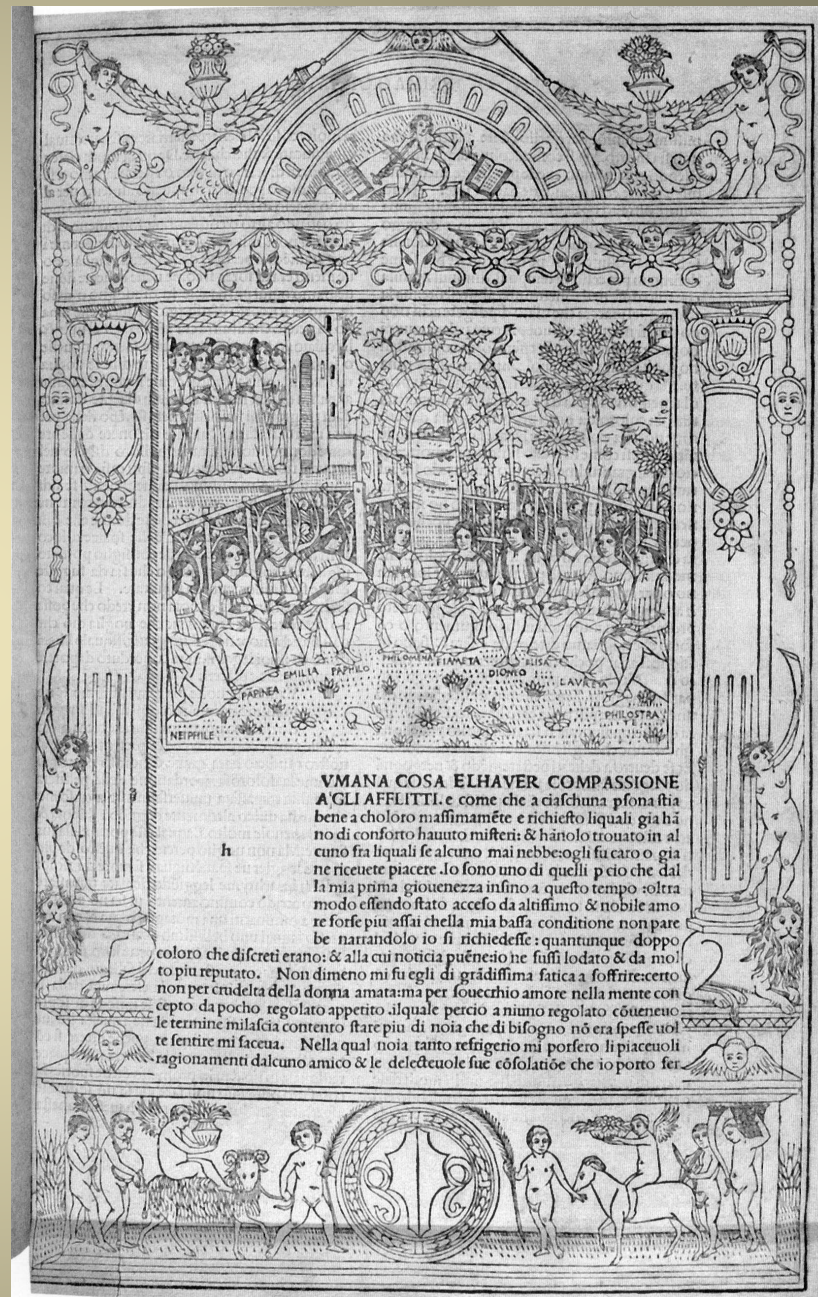 NEIPHILE
PAPINEA
EMILIA
PAPHILO
PHILOMENA
FIAMETA
DIONEO
ELISA
LAVRETA
PHILOSTRA
h
VMANA COSA ELHAVER COMPASSIONE
A'GLI AFFLITTI. e come che a ciaſchuna pſona ſtia
bene a choloro maſſimamēte e richieſto liquali gia hā
no di conforto hauuto miſteri: & hānolo trouato in al
cuno fra liquali ſe alcuno mai nebbe:ogli fu caro o gia
ne riceuete piacere .Io ſono uno di quelli p cio che dal
la mia prima giouenezza inſino a queſto tempo :oltra
modo eſſendo ſtato acceſo da altiſſimo & nobile amo
re forſe piu aſſai chella mia baſſa conditione non pare
be narrandolo io ſi richiedeſſe : quantunque doppo
coloro che diſcreti erano: & alla cui noticia puēne:io ne fuſſi lodato & da mol
to piu reputato. Non dimeno mi fu egli di grādiſſima fatica a ſoffrire:certo
non per crudelta della donna amata:ma per ſouecrhio amore nella mente con
cepto da pocho regolato appetito .ilquale percio a niuno regolato cōueneuo
le termine milaſcia contento ſtare piu di noia che di biſogno nō era ſpeſſe uol
te ſentire mi faceua. Nella qual noia tanto refrigerio mi porſero li piaceuoli
ragionamenti dalcuno amico & le delecteuole ſue cōſolatiōe che io porto fer